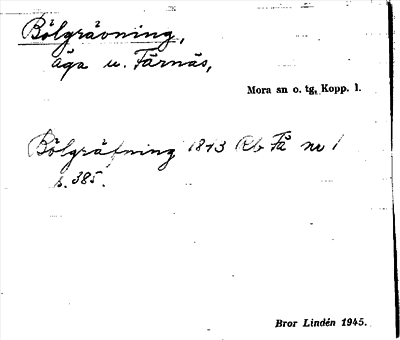 Bölgrävning,
äga u. Färnäs,
Mora sn o. tg, Kopp. l.
Bölgräfning 1843 Rb Få nr 1
s. 385.
Bror Lindén 1945.